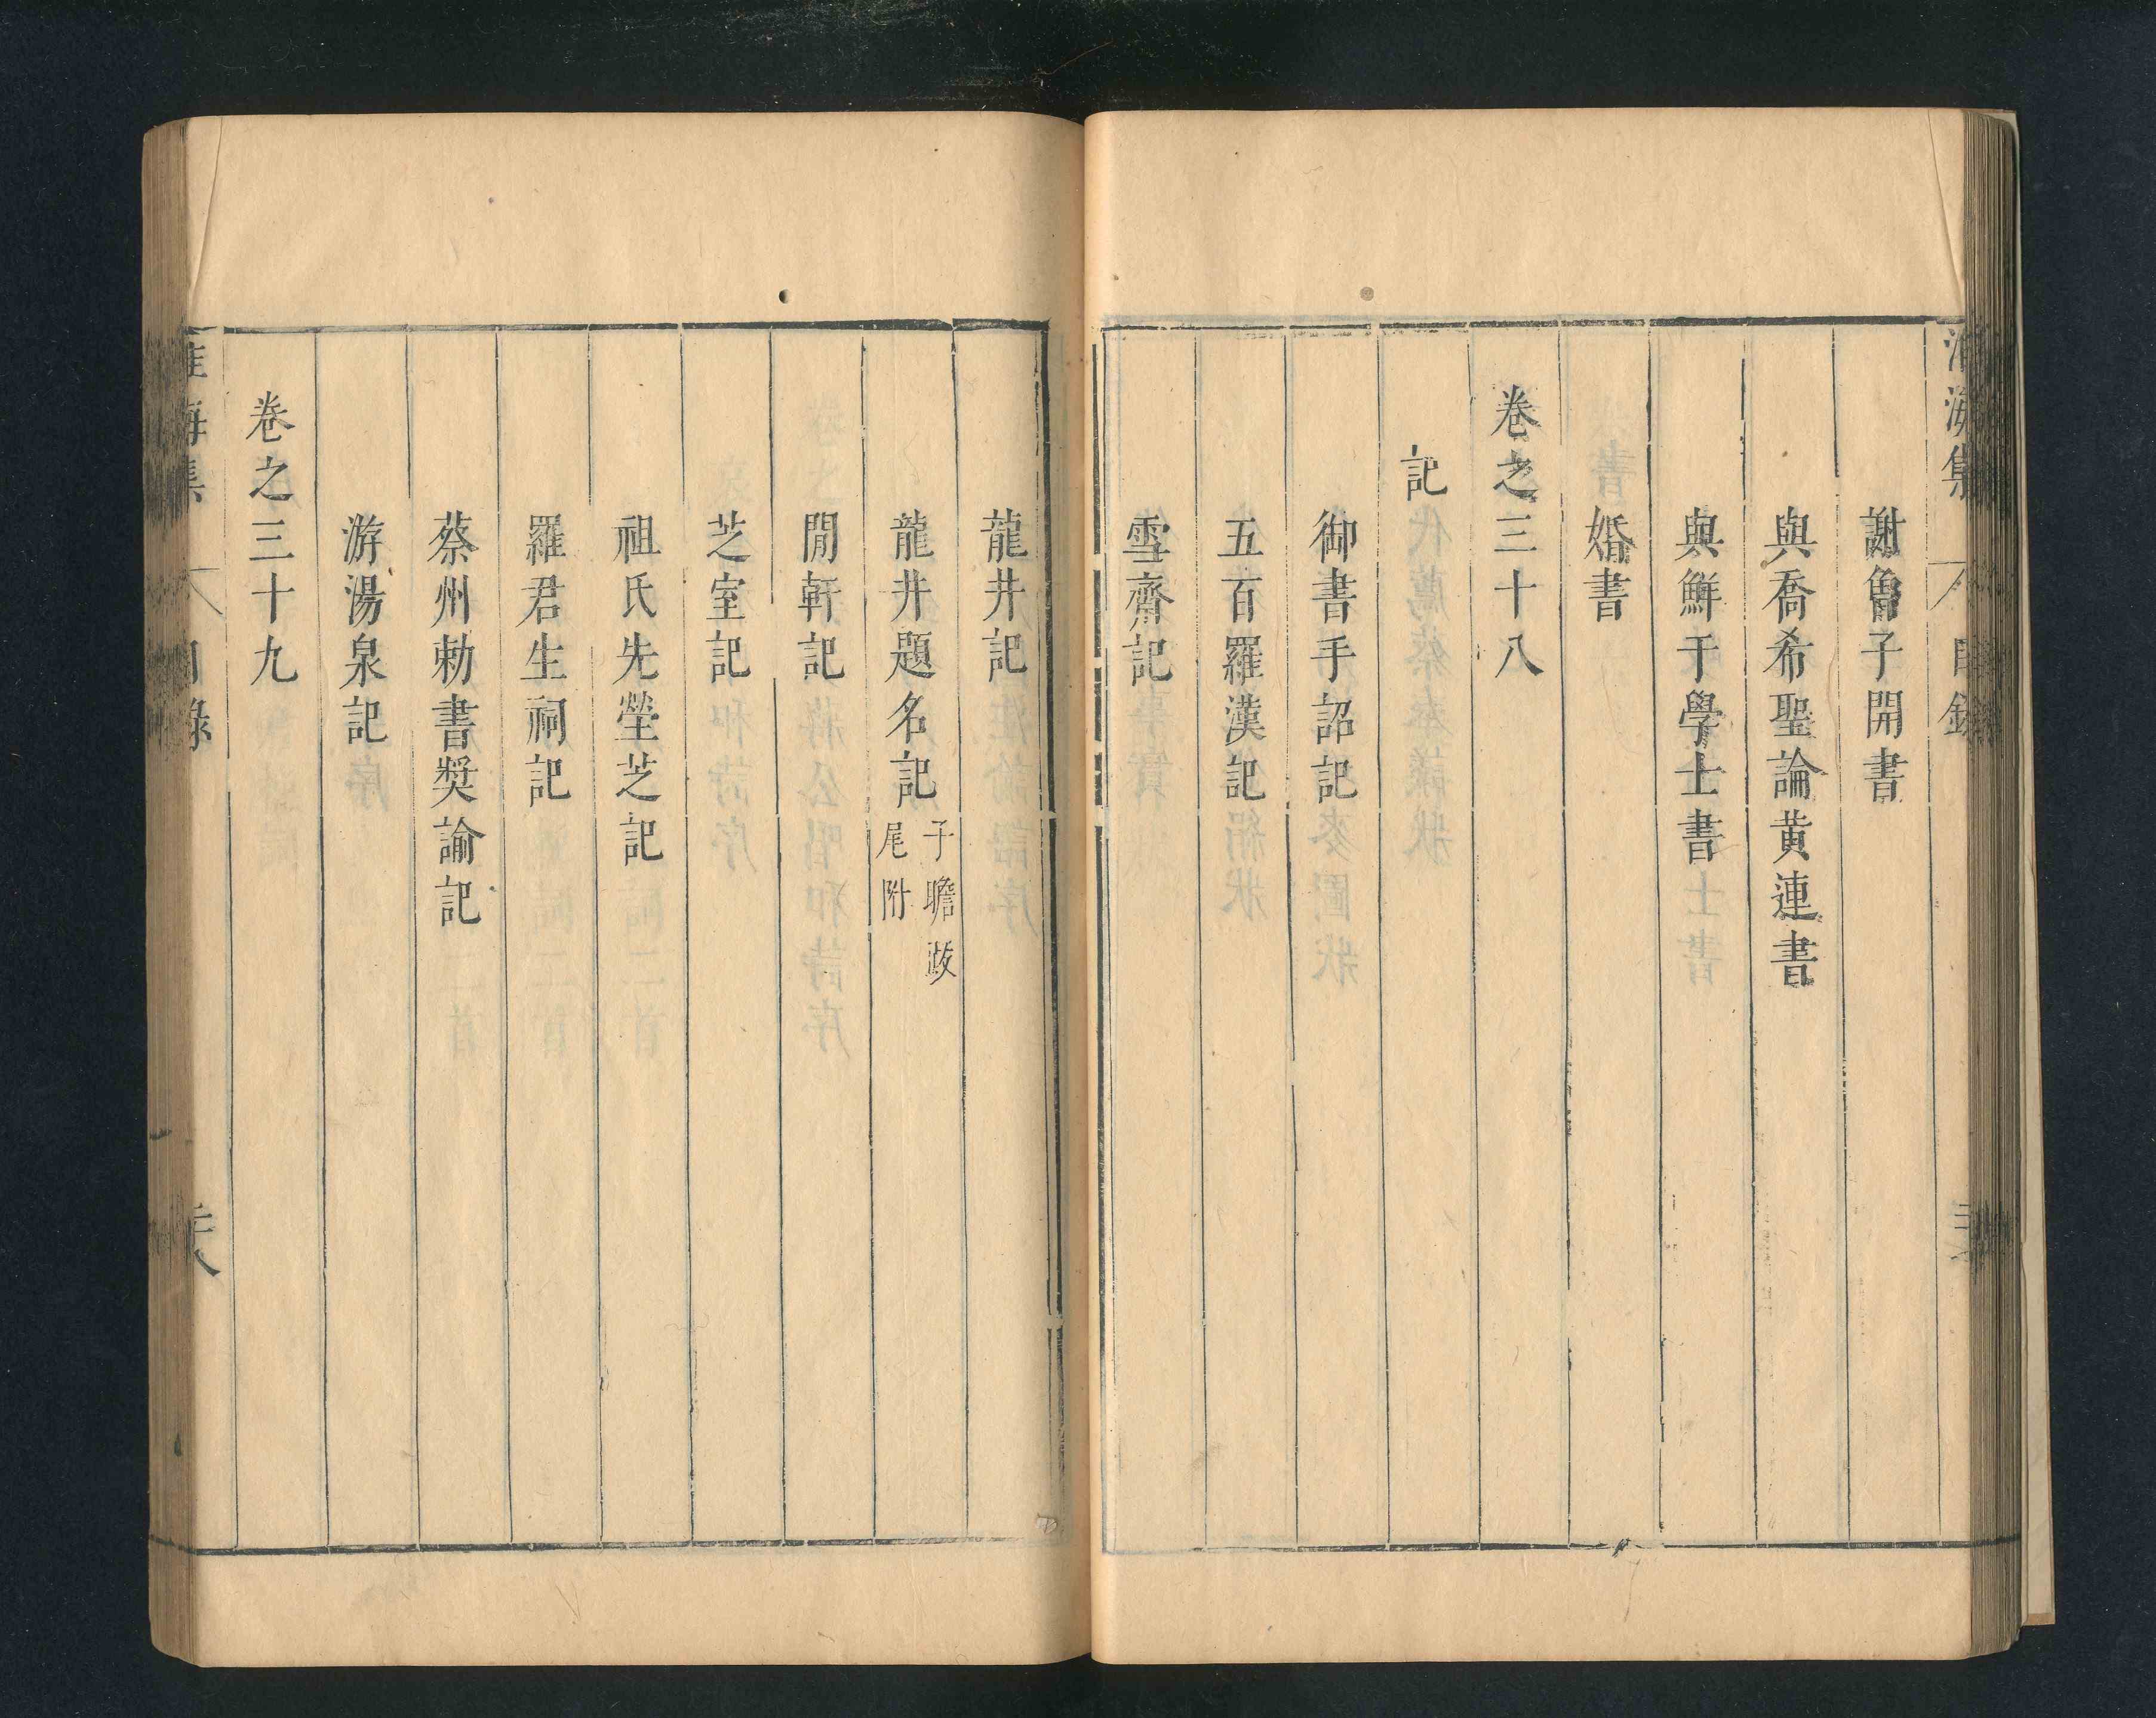 淮海集 目錄
謝魯子開書
與喬希聖論黃連書
與鮮于學士書
婚書
卷之三十八
記
御書手詔記
五百羅漢記
雪齋記
龍井記
龍井題名記 子瞻跋尾附
閒軒記
芝室記
祖氏先塋芝記
羅君生祠記
蔡州勅書奬諭記
游湯泉記
卷之三十九
淮海集 目錄